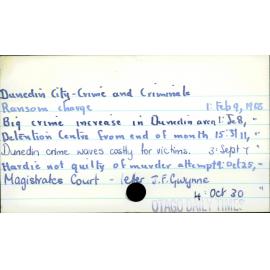 Dunedin City-Crime and Criminals
Ransom charge 1: Feb 9, 1958
Big crime increase in Dunedin area 1: Je 8, "
Detention Centre from end of month 15: Jl 11, "
Dunedin crime waves costly for victims. 3: Sept 7 "
Hardie not guilty of murder attempt 9: Oct 25, "
Magistrates Court - letter J.F. Gwynne
4: Oct 30 "
OTAGO DAILY TIMES